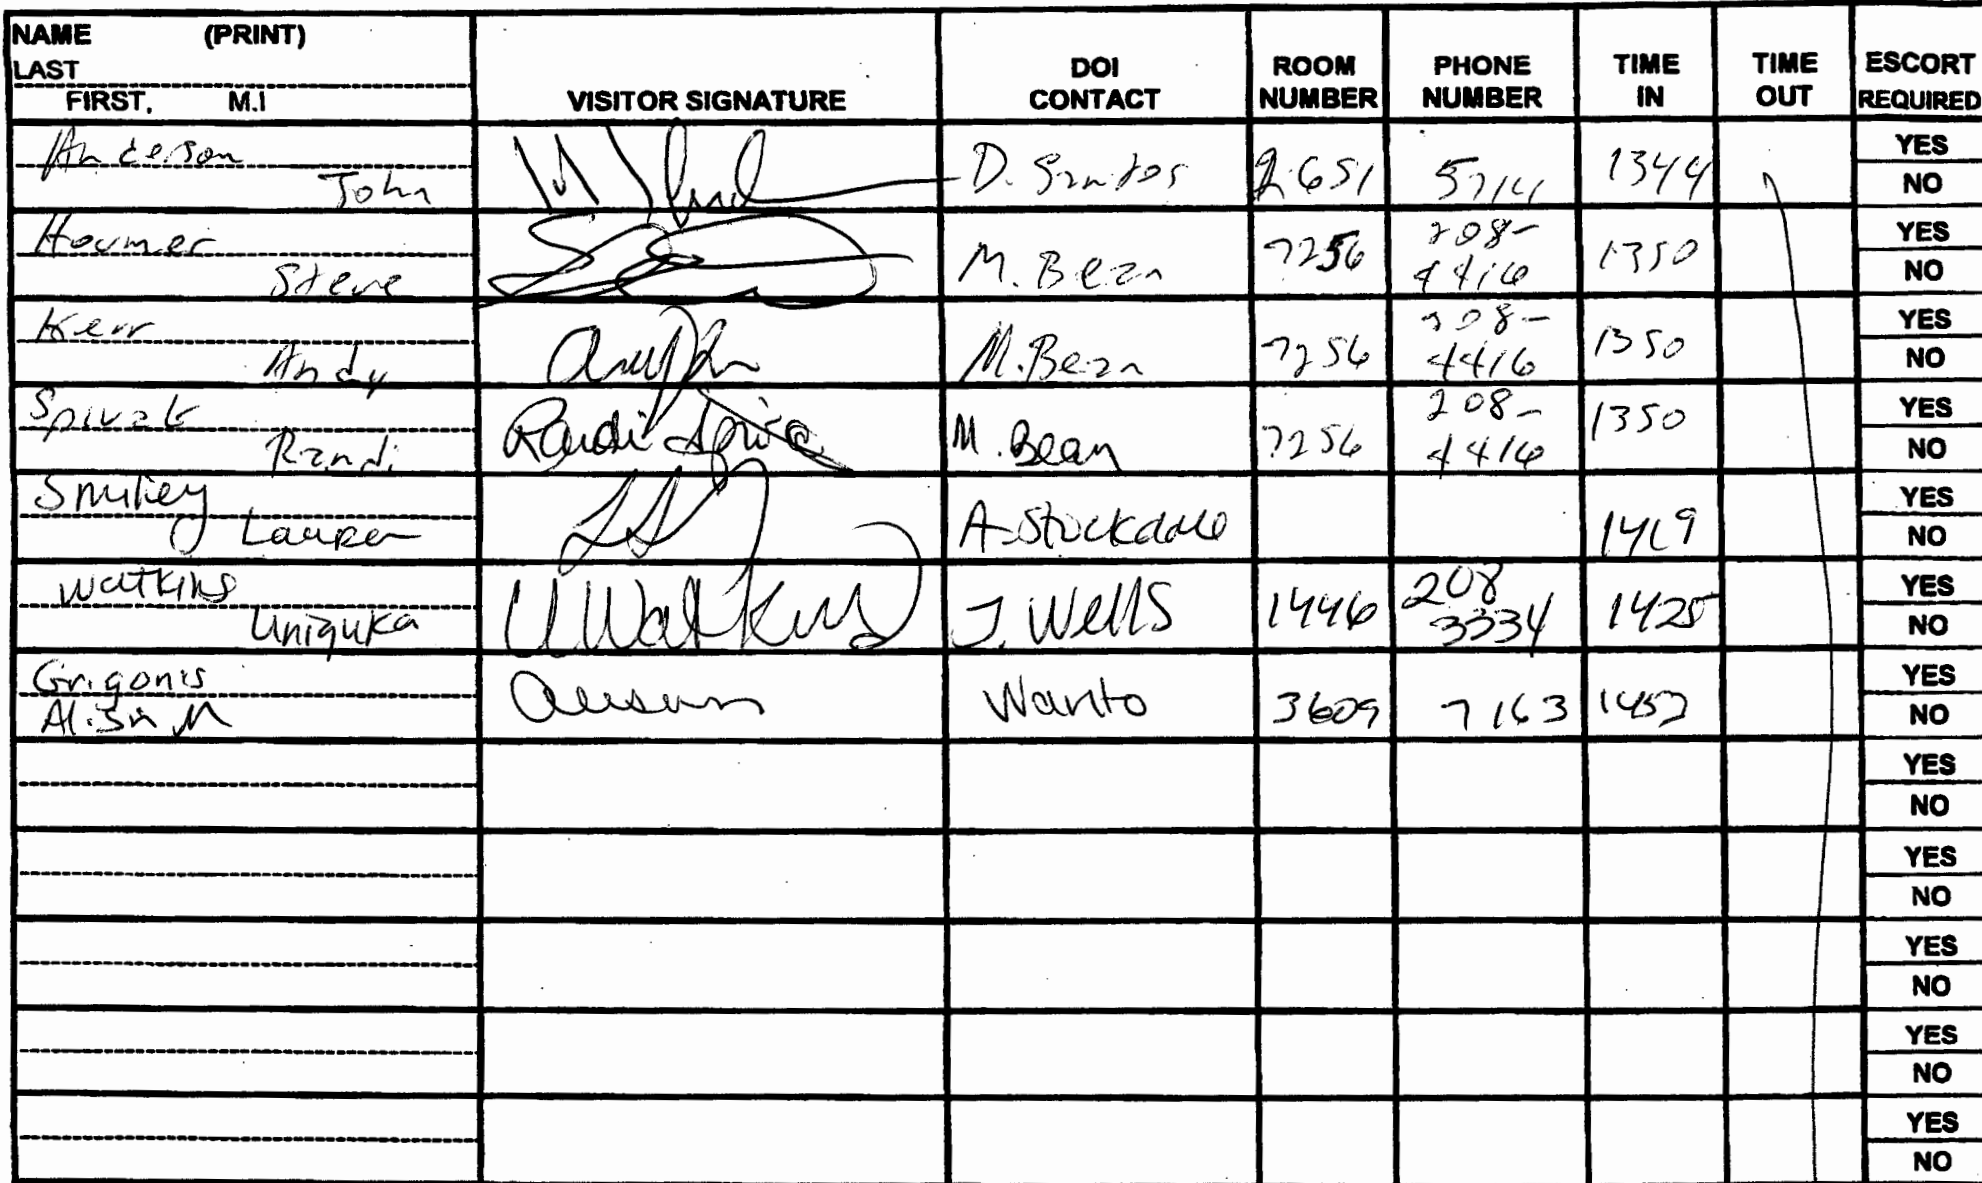 NAME (PRINT)
LAST
FIRST, M.I
VISITOR SIGNATURE
DOI CONTACT
ROOM NUMBER
PHONE NUMBER
TIME IN
TIME OUT
ESCORT REQUIRED
Anderson
John
D. Santos 2651 5714 1344 YES
NO
Steve
M. Bean 7256 208-4416 1350 YES
NO
Kerr
Andy
M. Bean 7256 208-4416 1350 YES
NO
Spivak
Randi
Randi Spiva M. Bean 7256 208-4416 1350 YES
NO
Smiley
Lauren
LS A. Stockdale 1419 YES
NO
Watkins
Uniquka
U Watkins J. Wells 1446 208 3334 1425 YES
NO
Grigonis
Alison M
Alison Wanto 3609 7163 1452 YES
NO
YES
NO
YES
NO
YES
NO
YES
NO
YES
NO